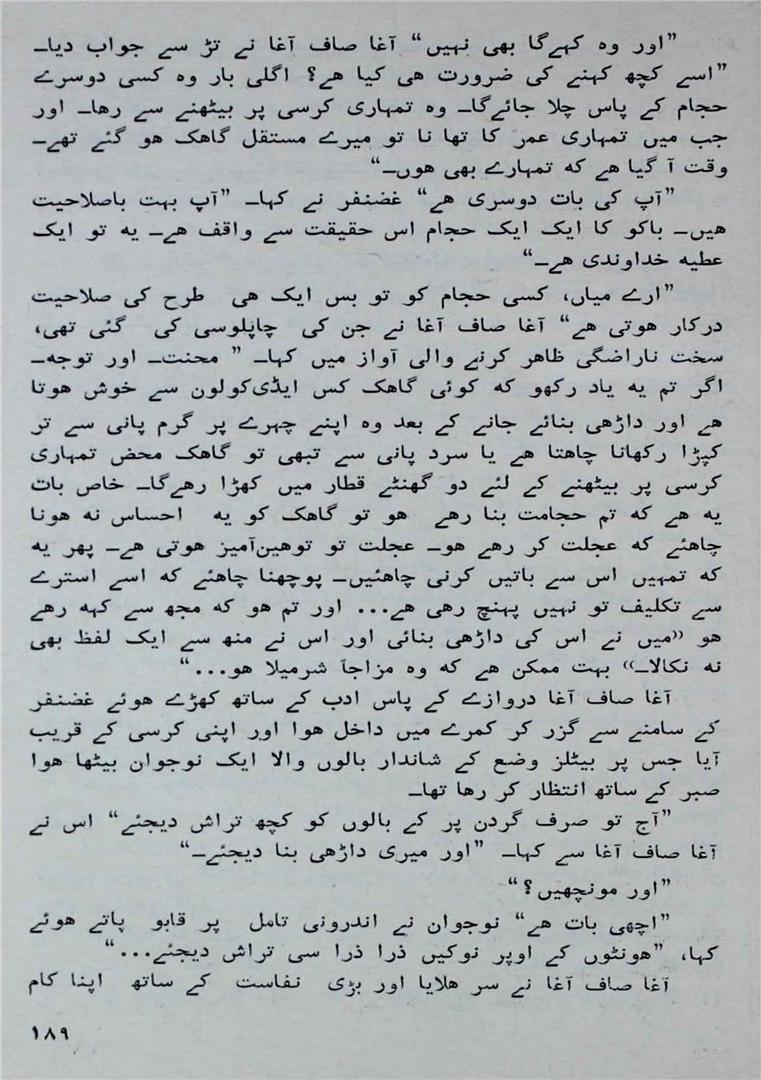 ”اور وہ کہےگا بھی نہیں“ آغا صاف آغا نے تڑ سے جواب دیا۔
”اسے کچھ کہنے کی ضرورت ھی کیا ھے؟ اگلی بار وہ کسی دوسرے
حجام کے پاس چلا جائےگا۔ وہ تمہاری کرسی پر بیٹھنے سے رھا۔ اور
جب میں تمہاری عمر کا تھا نا تو میرے مستقل گاھک ھو گئے تھے۔
وقت آ گیا ھے کہ تمہارے بھی ھوں۔“
”آپ کی بات دوسری ھے“ غضنفر نے کہا۔ ”آپ بہت باصلاحیت
ھیں۔ باکو کا ایک ایک حجام اس حقیقت سے واقف ھے۔ یہ تو ایک
عطیہ خداوندی ھے۔“
”ارے میاں، کسی حجام کو تو بس ایک ھی طرح کی صلاحیت
درکار ھوتی ھے“ آغا صاف آغا نے جن کی چاپلوسی کی گئی تھی،
سخت ناراضگی ظاھر کرنے والی آواز میں کہا۔ ” محنت۔ اور توجہ۔
اگر تم یہ یاد رکھو کہ کوئی گاھک کس ایڈی‌کولون سے خوش ھوتا
ھے اور داڑھی بنائے جانے کے بعد وہ اپنے چہرے پر گرم پانی سے تر
کپڑا رکھانا چاھتا ھے یا سرد پانی سے تبھی تو گاھک محض تمہاری
کرسی پر بیٹھنے کے لئے دو گھنٹے قطار میں کھڑا رھےگا۔ خاص بات
یہ ھے کہ تم حجامت بنا رھے ھو تو گاھک کو یہ احساس نہ ھونا
چاھئے کہ عجلت کر رھے ھو۔ عجلت تو توھین‌آمیز ھوتی ھے۔ پھر یہ
کہ تمہیں اس سے باتیں کرنی چاھئیں۔ پوچھنا چاھئے کہ اسے استرے
سے تکلیف تو نہیں پہنچ رھی ھے... اور تم ھو کہ مجھ سے کہہ رھے
ھو «میں نے اس کی داڑھی بنائی اور اس نے منھ سے ایک لفظ بھی
نہ نکالا۔» بہت ممکن ھے کہ وہ مزاجاً شرمیلا ھو...“
آغا صاف آغا دروازے کے پاس ادب کے ساتھ کھڑے ھوئے غضنفر
کے سامنے سے گزر کر کمرے میں داخل ھوا اور اپنی کرسی کے قریب
آیا جس پر بیٹلز وضع کے شاندار بالوں والا ایک نوجوان بیٹھا ھوا
صبر کے ساتھ انتظار کر رھا تھا۔
”آج تو صرف گردن پر کے بالوں کو کچھ تراش دیجئے“ اس نے
آغا صاف آغا سے کہا۔ ”اور میری داڑھی بنا دیجئے۔“
”اور مونچھیں؟“
”اچھی بات ھے“ نوجوان نے اندرونی تامل پر قابو پاتے ھوئے
کہا، ”ھونٹوں کے اوپر نوکیں ذرا ذرا سی تراش دیجئے...“
آغا صاف آغا نے سر ھلایا اور بڑی نفاست کے ساتھ اپنا کام
۱۸۹